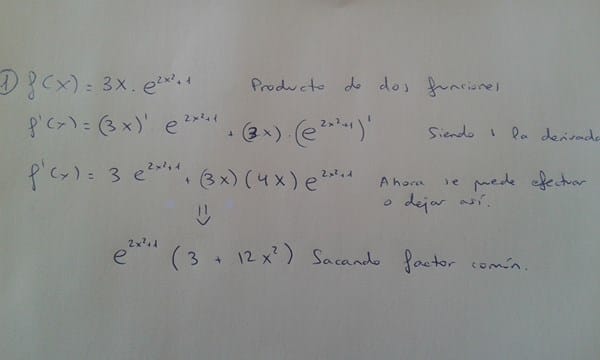 ① f(x) = 3x · e^(2x²+1) Producto de dos funciones
f'(x) = (3x)' e^(2x²+1) + (3x) · (e^(2x²+1))' Siendo ' la derivada
f'(x) = 3 e^(2x²+1) + (3x)(4x) e^(2x²+1) Ahora se puede efectuar
o dejar así.
⇓
e^(2x²+1) (3 + 12x²) Sacando factor común.